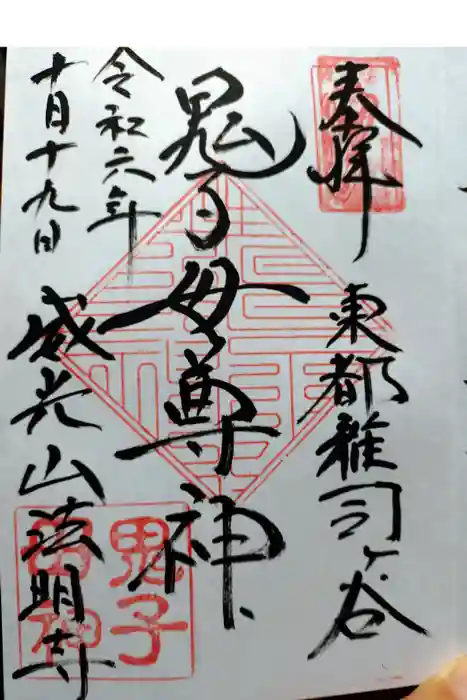 奉拝
東都雑司ヶ谷
鬼子母尊神
令和六年
十月十九日
威光山法明寺